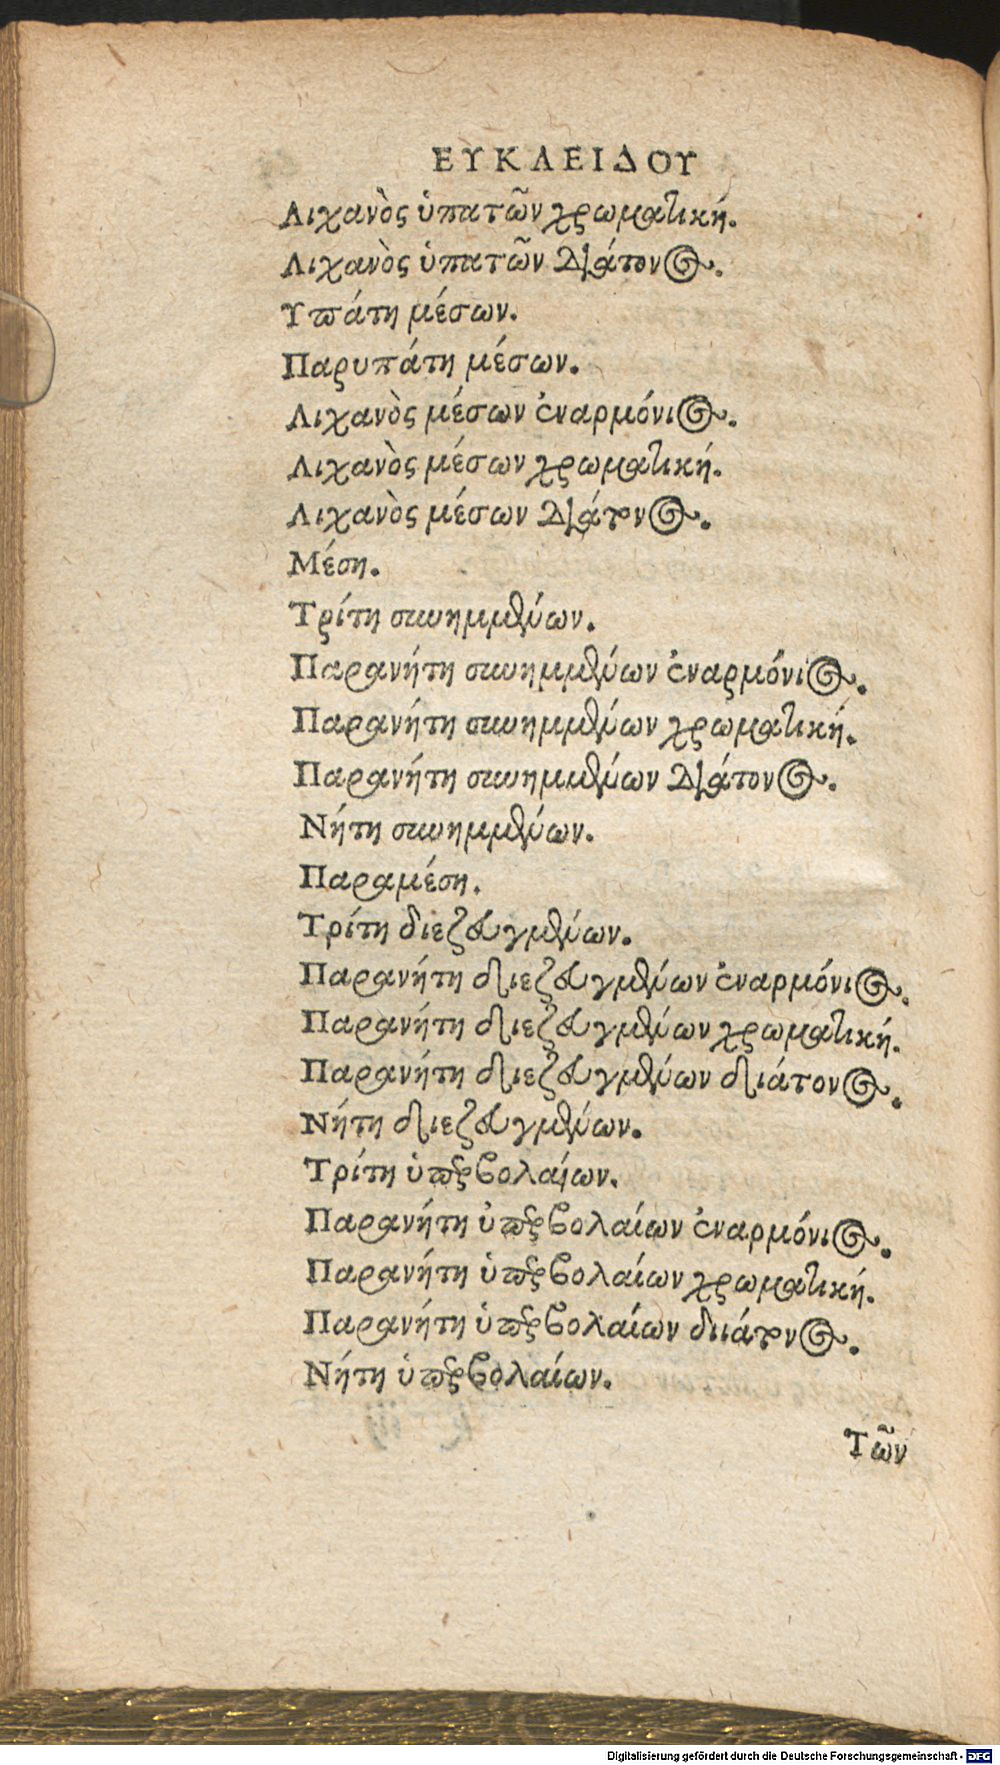 ΕΥΚΛΕΙΔΟΥ
Λιχανὸς ὑπατῶν χρωματική.
Λιχανὸς ὑπατῶν διάτονος.
Υπάτη μέσων.
Παρυπάτη μέσων.
Λιχανὸς μέσων ἐναρμόνιος.
Λιχανὸς μέσων χρωματική.
Λιχανὸς μέσων διάτονος.
Μέση.
Τρίτη συνημμένων.
Παρανήτη συνημμένων ἐναρμόνιος.
Παρανήτη συνημμένων χρωματική.
Παρανήτη συνημμένων διάτονος.
Νήτη συνημμένων.
Παραμέση.
Τρίτη διεζευγμένων.
Παρανήτη διεζευγμένων ἐναρμόνιος.
Παρανήτη διεζευγμένων χρωματική.
Παρανήτη διεζευγμένων διάτονος.
Νήτη διεζευγμένων.
Τρίτη ὑπερβολαίων.
Παρανήτη ὑπερβολαίων ἐναρμόνιος.
Παρανήτη ὑπερβολαίων χρωματική.
Παρανήτη ὑπερβολαίων διάτονος.
Νήτη ὑπερβολαίων.
Τῶν
Digitalisierung gefördert durch die Deutsche Forschungsgemeinschaft - DFG